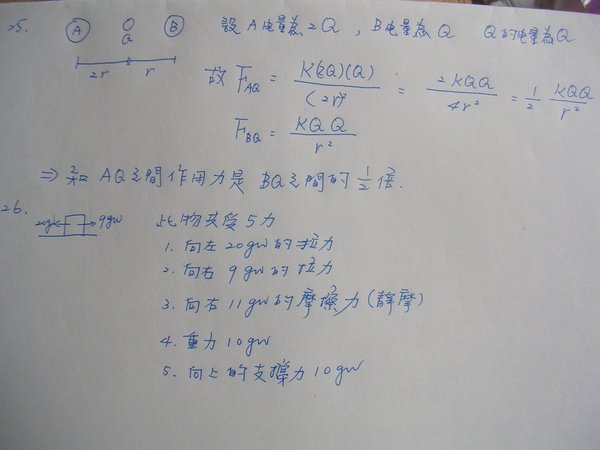 25. A Q B 設A电量為2Q，B电量為Q Q的电量為Q
2r r
故 F_AQ = K(2Q)(Q)/(2r)² = 2KQQ/4r² = 1/2 KQQ/r²
F_BQ = KQQ/r²
⇒ 知 AQ之間作用力是BQ之間的1/2倍.
26. 20gw 9gw 此物共受5力
1. 向左20gw的拉力
2. 向右9gw的拉力
3. 向右11gw的摩擦力(靜摩)
4. 重力10gw
5. 向上的支撐力10gw